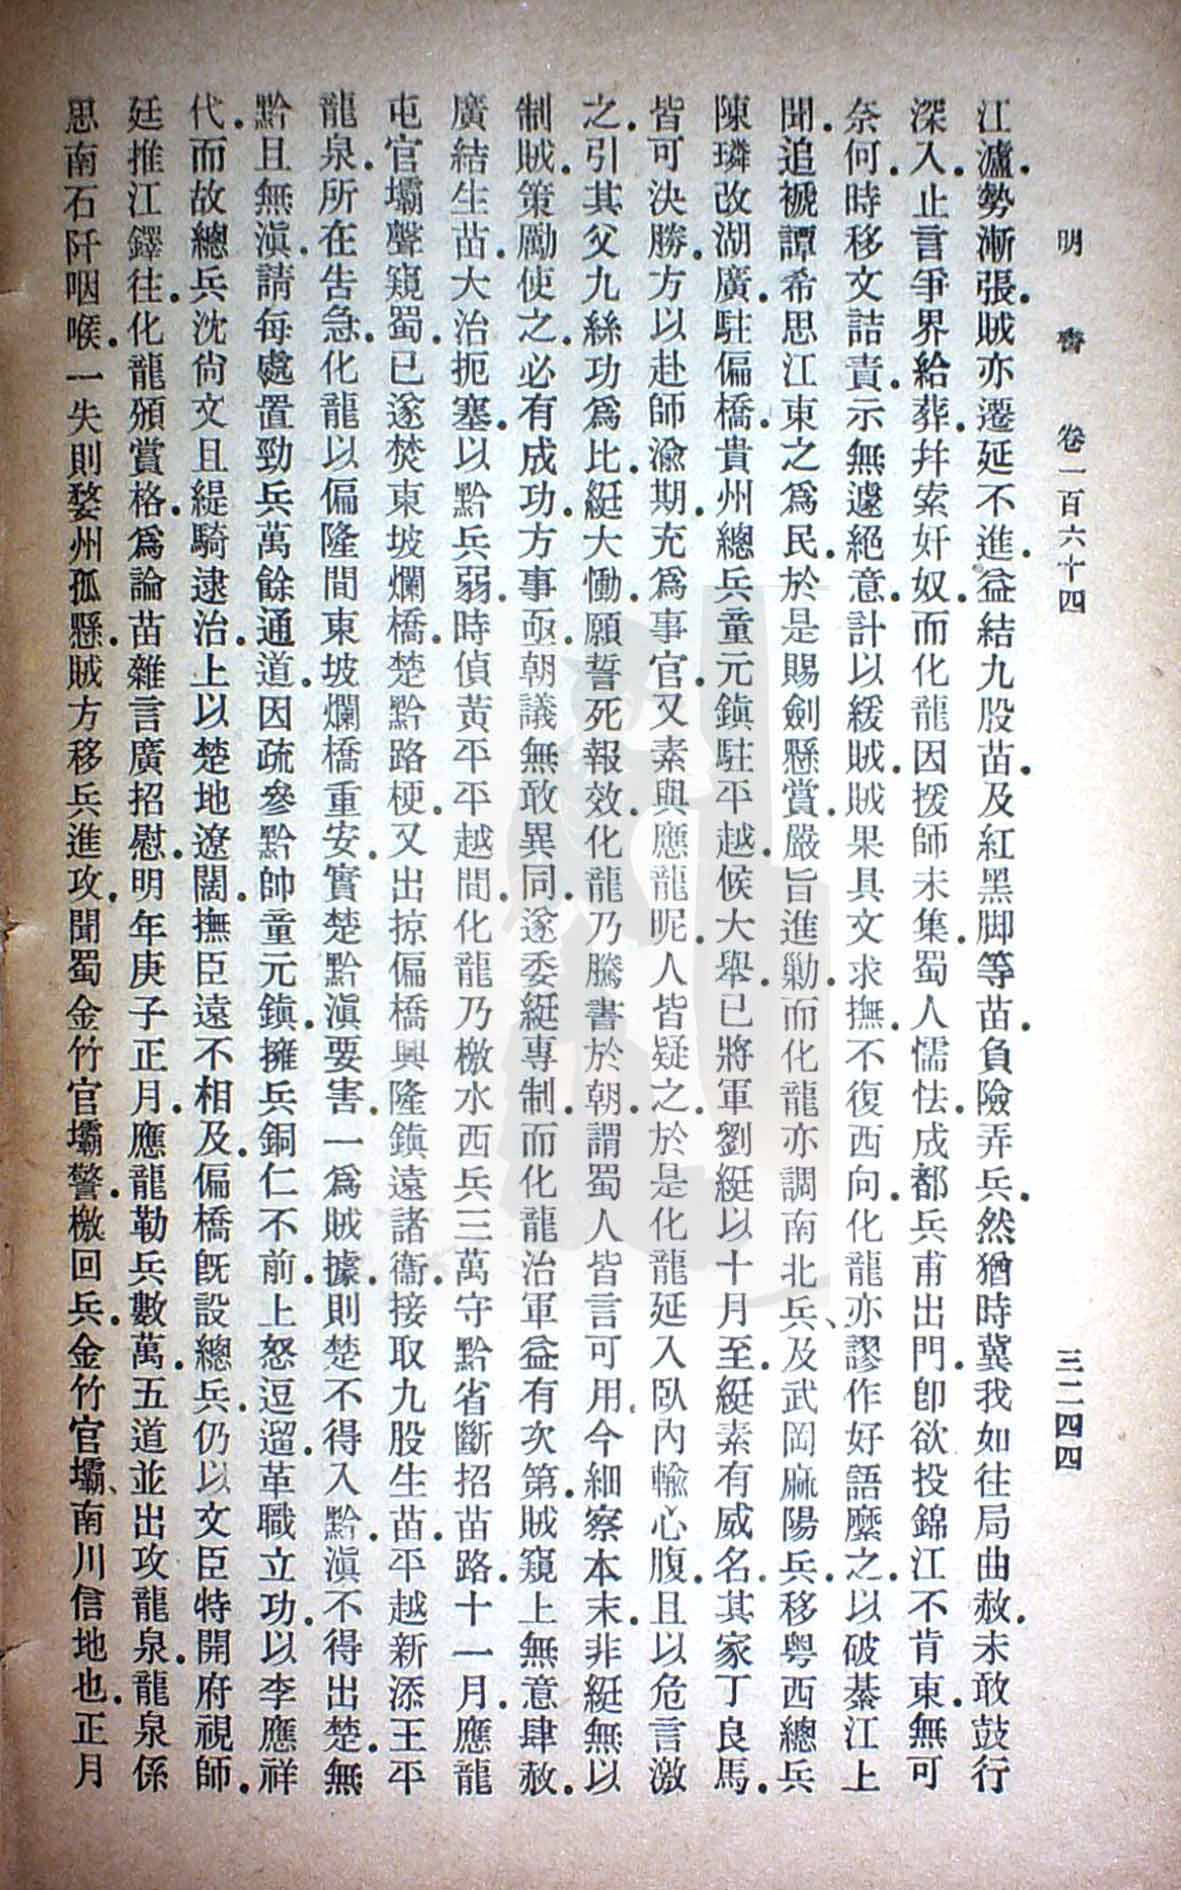 明書 卷一百六十四 三二四四
江瀘勢漸張賊亦遷延不進益結九股苗及紅黑脚等苗負險弄兵然猶時冀我如往局曲赦未敢鼓行
深入止言爭界給葬幷索奸奴而化龍因援師未集蜀人懦怯成都兵甫出門卽欲投錦江不肯東無可
奈何時移文詰責示無遽絕意計以緩賊賊果具文求撫不復西向化龍亦謬作好語縻之以破綦江上
聞追褫譚希思江東之爲民於是賜劍懸賞嚴旨進勦而化龍亦調南北兵、及武岡麻陽兵移粤西總兵
陳璘改湖廣駐偏橋貴州總兵童元鎮駐平越候大舉已將軍劉綎以十月至綎素有威名其家丁良馬
皆可決勝方以赴師渝期充爲事官又素與應龍昵人皆疑之於是化龍延入臥內輸心腹且以危言激
之引其父九絲功爲比綎大慟願誓死報效化龍乃騰書於朝謂蜀人皆言可用今細察本末非綎無以
制賊策勵使之必有成功方事亟朝議無敢異同遂委綎專制而化龍治軍益有次第賊窺上無意肆赦
廣結生苗大治扼塞以黔兵弱時偵黃平平越間化龍乃檄水西兵三萬守黔省斷招苗路十一月應龍
屯官壩聲窺蜀已遂焚東坡爛橋楚黔路梗又出掠偏橋興隆鎮遠諸衞接取九股生苗平越新添王平
龍泉所在告急化龍以偏隆間東坡爛橋重安實楚黔滇要害一爲賊據則楚不得入黔滇不得出楚無
黔且無滇請每處置勁兵萬餘通道因疏參黔帥童元鎮擁兵銅仁不前上怒逗遛革職立功以李應祥
代而故總兵沈尙文且緹騎逮治上以楚地遼闊撫臣遠不相及偏橋旣設總兵仍以文臣特開府視師
廷推江鐸往化龍頒賞格爲論苗雜言廣招慰明年庚子正月應龍勒兵數萬五道並出攻龍泉龍泉係
思南石阡咽喉一失則婺州孤懸賊方移兵進攻聞蜀金竹官壩警檄回兵金竹官壩、南川信地也正月